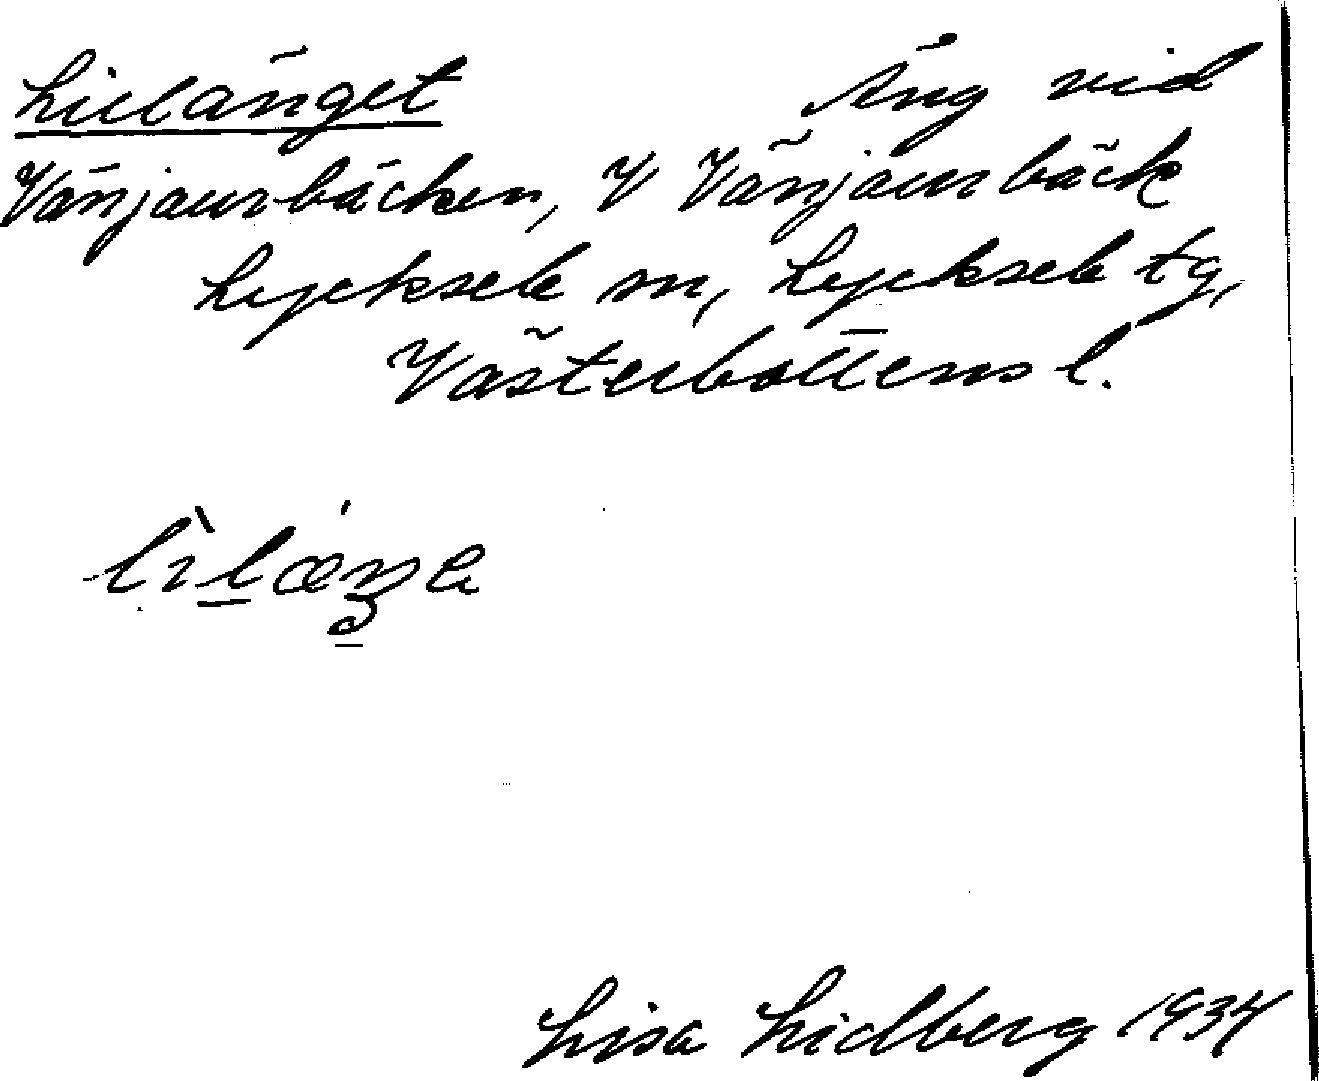 Lillänget Äng vid
Vänjaurbäcken, V Vänjaurbäck
Lycksele sn, Lycksele tg,
Västerbottens l.
Lisa Lidberg 1934